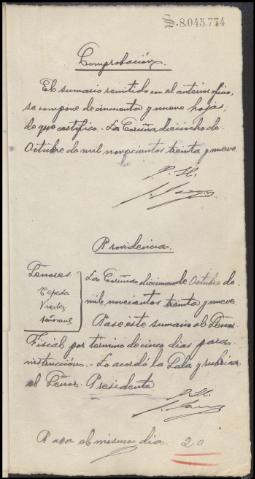 8.045.774
Comprobación.
El sumario remitido en el anterior oficio,
se compone de cincuenta y nueve hojas
de que certifico.- La Coruña dieciocho de
Octubre de mil novecientos treinta y nueve
Providencia.
Señores
Cepeda
La Coruña diecinueve Octubre de
mil novecientos treinta y nueve
Pase este sumario al Señor
Fiscal por término de cinco días para
instrucción.- Lo acordó la Sala y rubrica
el Señor Presidente
Pasa el mismo día 20